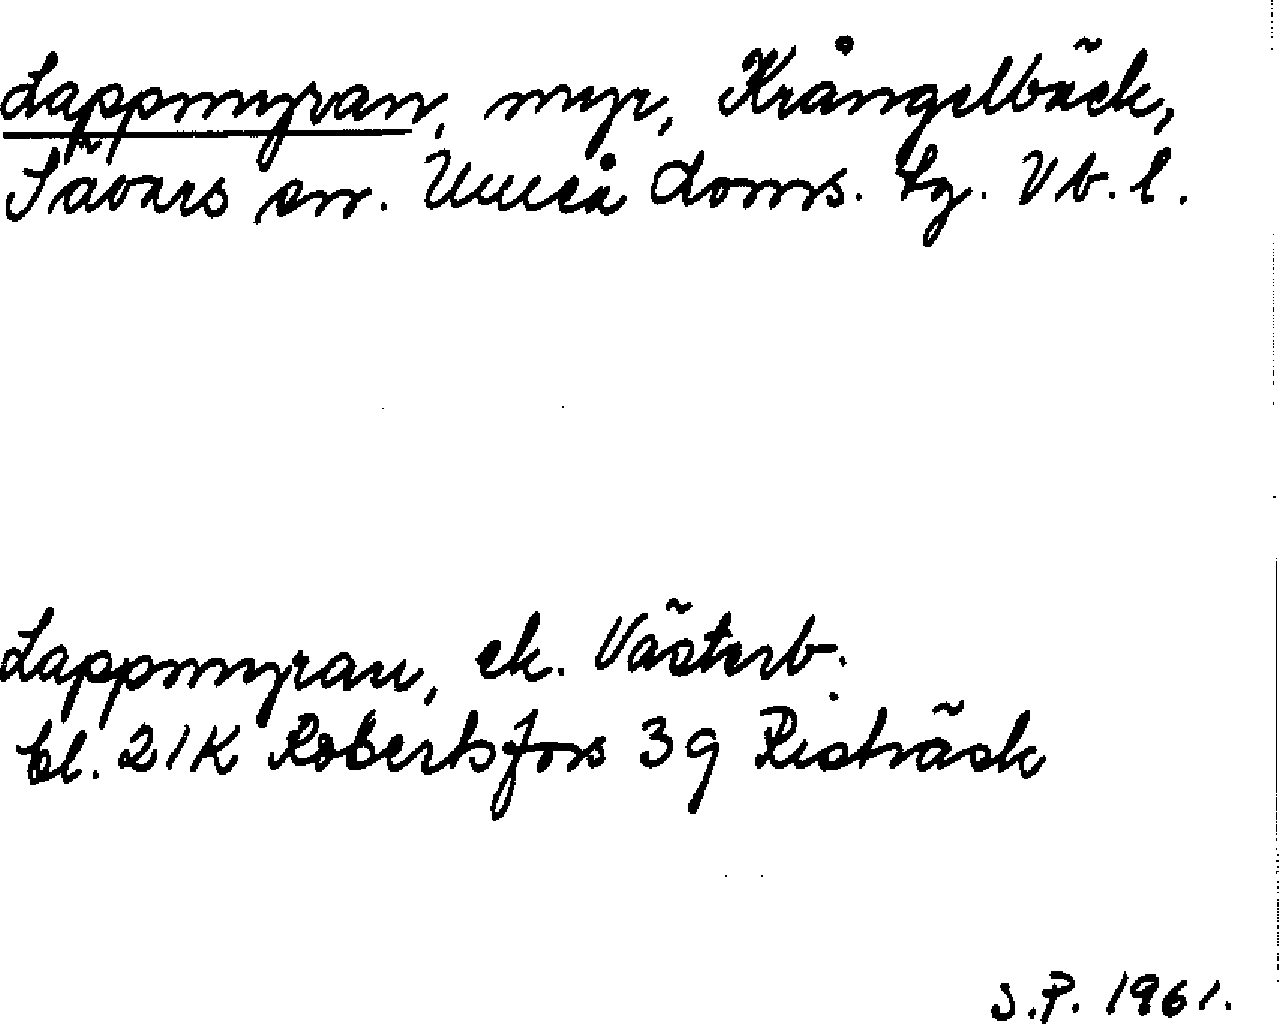 Lappmyran, myr, Krångelbäck,
Sävars sn. Umeå doms. tg. Vb. l.
Lappmyran, ek. Västerb.
bl. 21K Robertsfors 3g Risträsk
S.P. 1961.